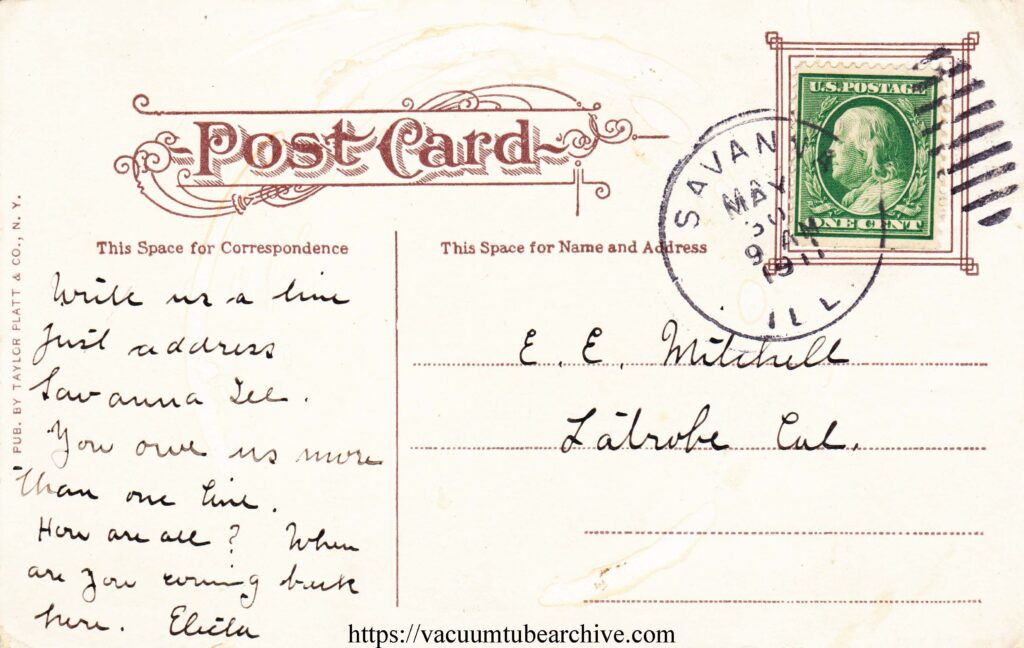 Post Card
U.S. POSTAGE
ONE CENT
SAVANNA
MAY
30
9 AM
1911
ILL
This Space for Correspondence
This Space for Name and Address
PUB. BY TAYLOR PLATT & CO., N. Y.
Write us a line
Just address
Savanna Ill.
You owe us more
than one line.
How are all? When
are you coming back
here.
E. E. Mitchell
Latrobe Cal.
https://vacuumtubearchive.com